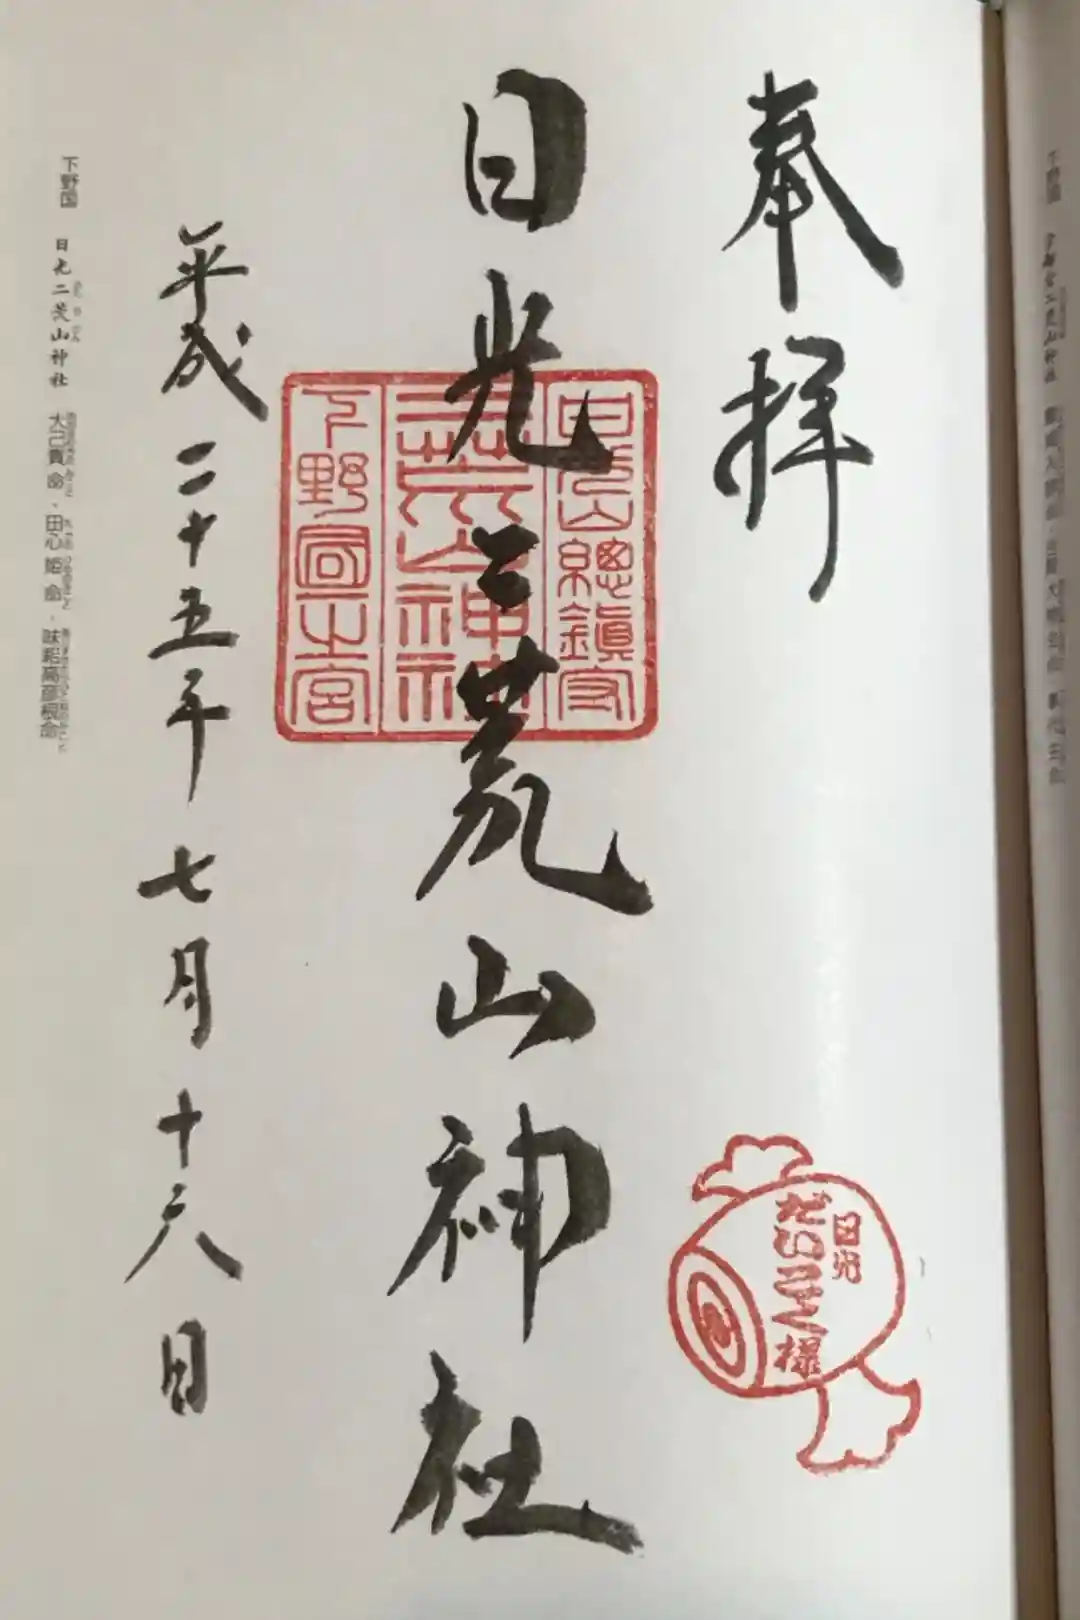 下野国 宇都宮二荒山神社
奉拝
日光
だいこく様
日光二荒山神社
日光山總鎮守
二荒山神社
下野國一之宮
平成二十五年七月十六日
下野国 日光二荒山神社 大己貴命、田心姫命、味耜高彦根命